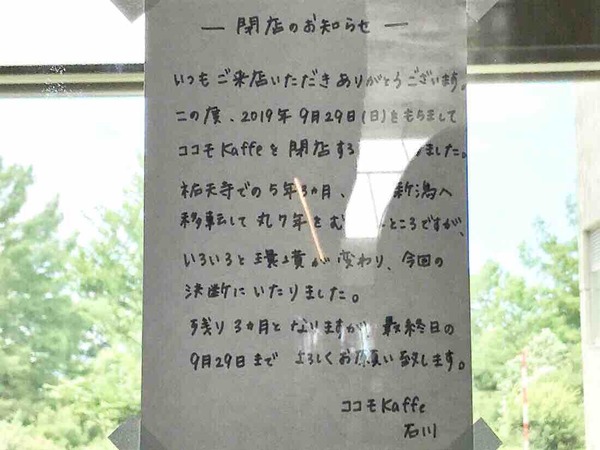 ― 閉店のお知らせ ―
いつもご来店いただきありがとうございます。
この度、2019年9月29日(日)をもちまして
ココモKaffeを閉店する ました。
祐天寺での5年3ヵ月、 新潟へ
移転して丸7年をむ ところですが、
いろいろと環境が変わり、今回の
決断にいたりました。
残り3ヵ月となりますが 最終日の
9月29日まで よろしくお願い致します。
ココモKaffe
石川